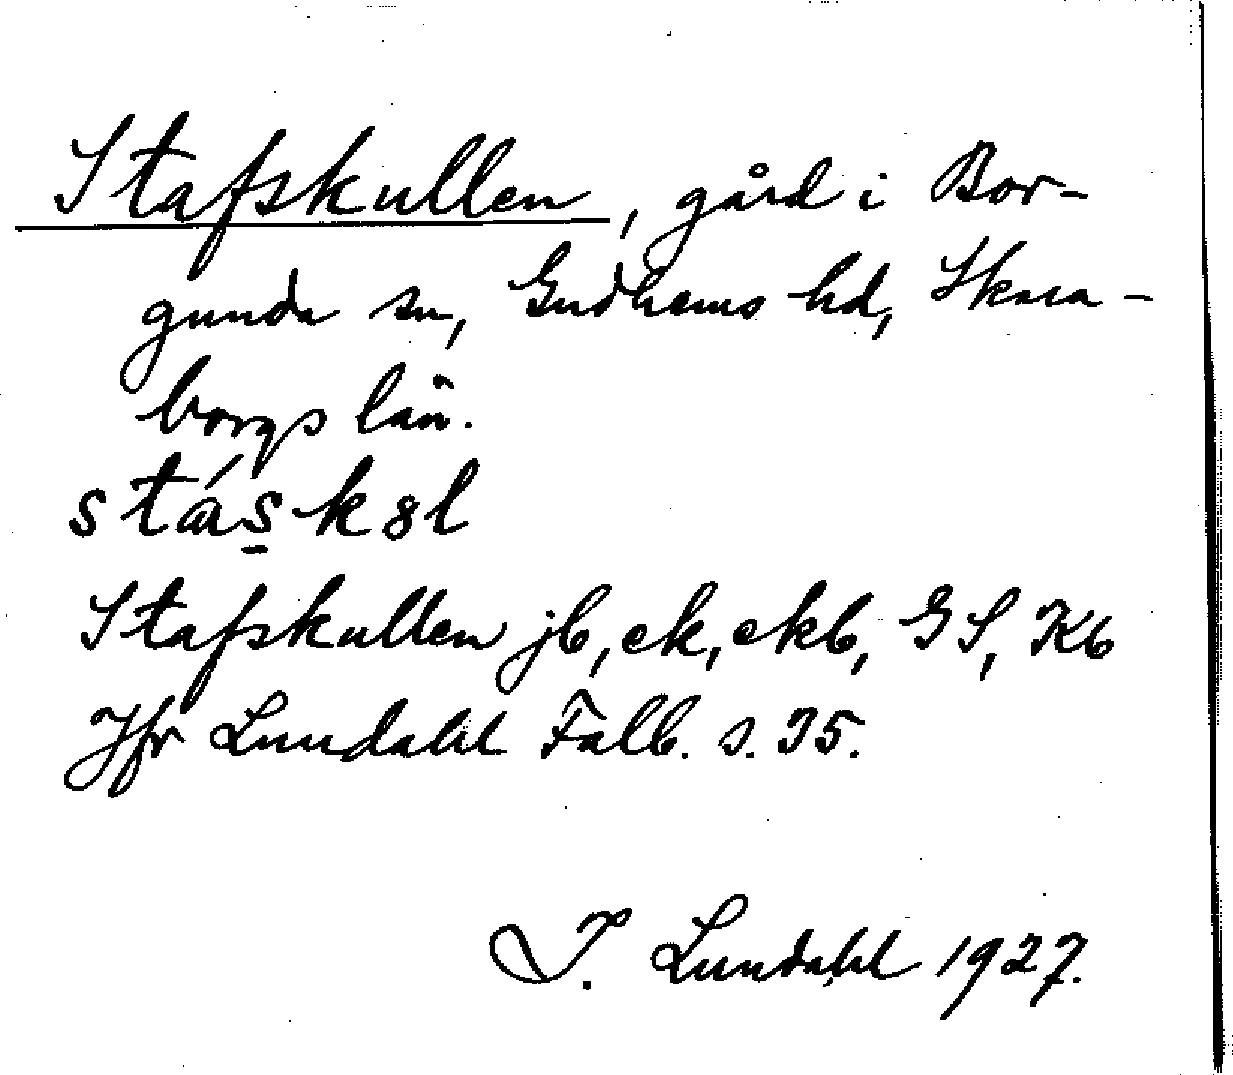 Stafskullen, gård i Bor-
gunda sn, Gudhems hd, Skara-
borgs län.
stás̱k8l
Stafskullen jb, ek, ekb, GS, Kb
Jfr Lundahl Falb. s. 35.
I. Lundahl 1927.